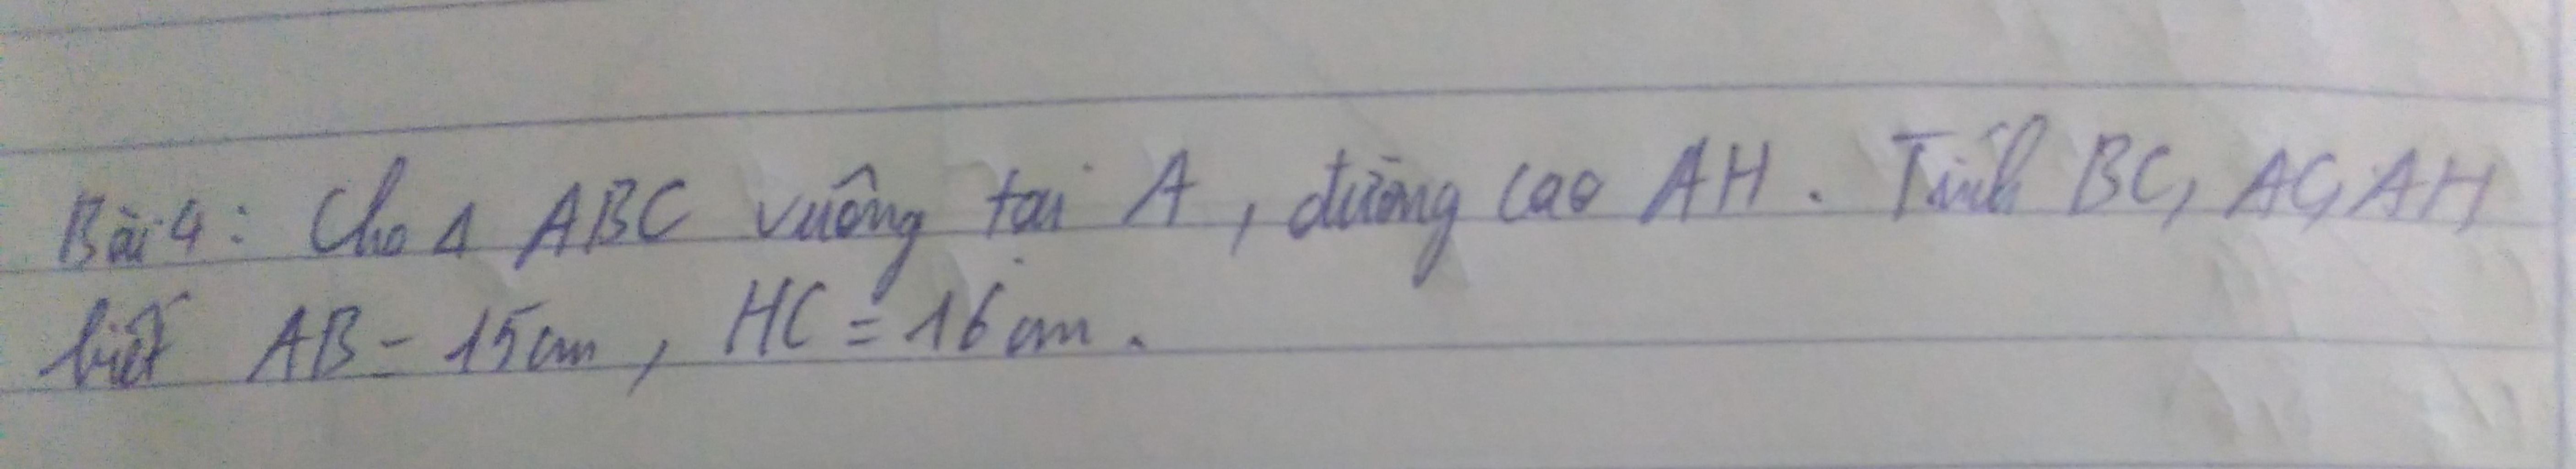 Bài 4: Cho Δ ABC vuông tại A, đường cao AH. Tính BC, AC, AH
biết AB = 15cm, HC = 16cm.